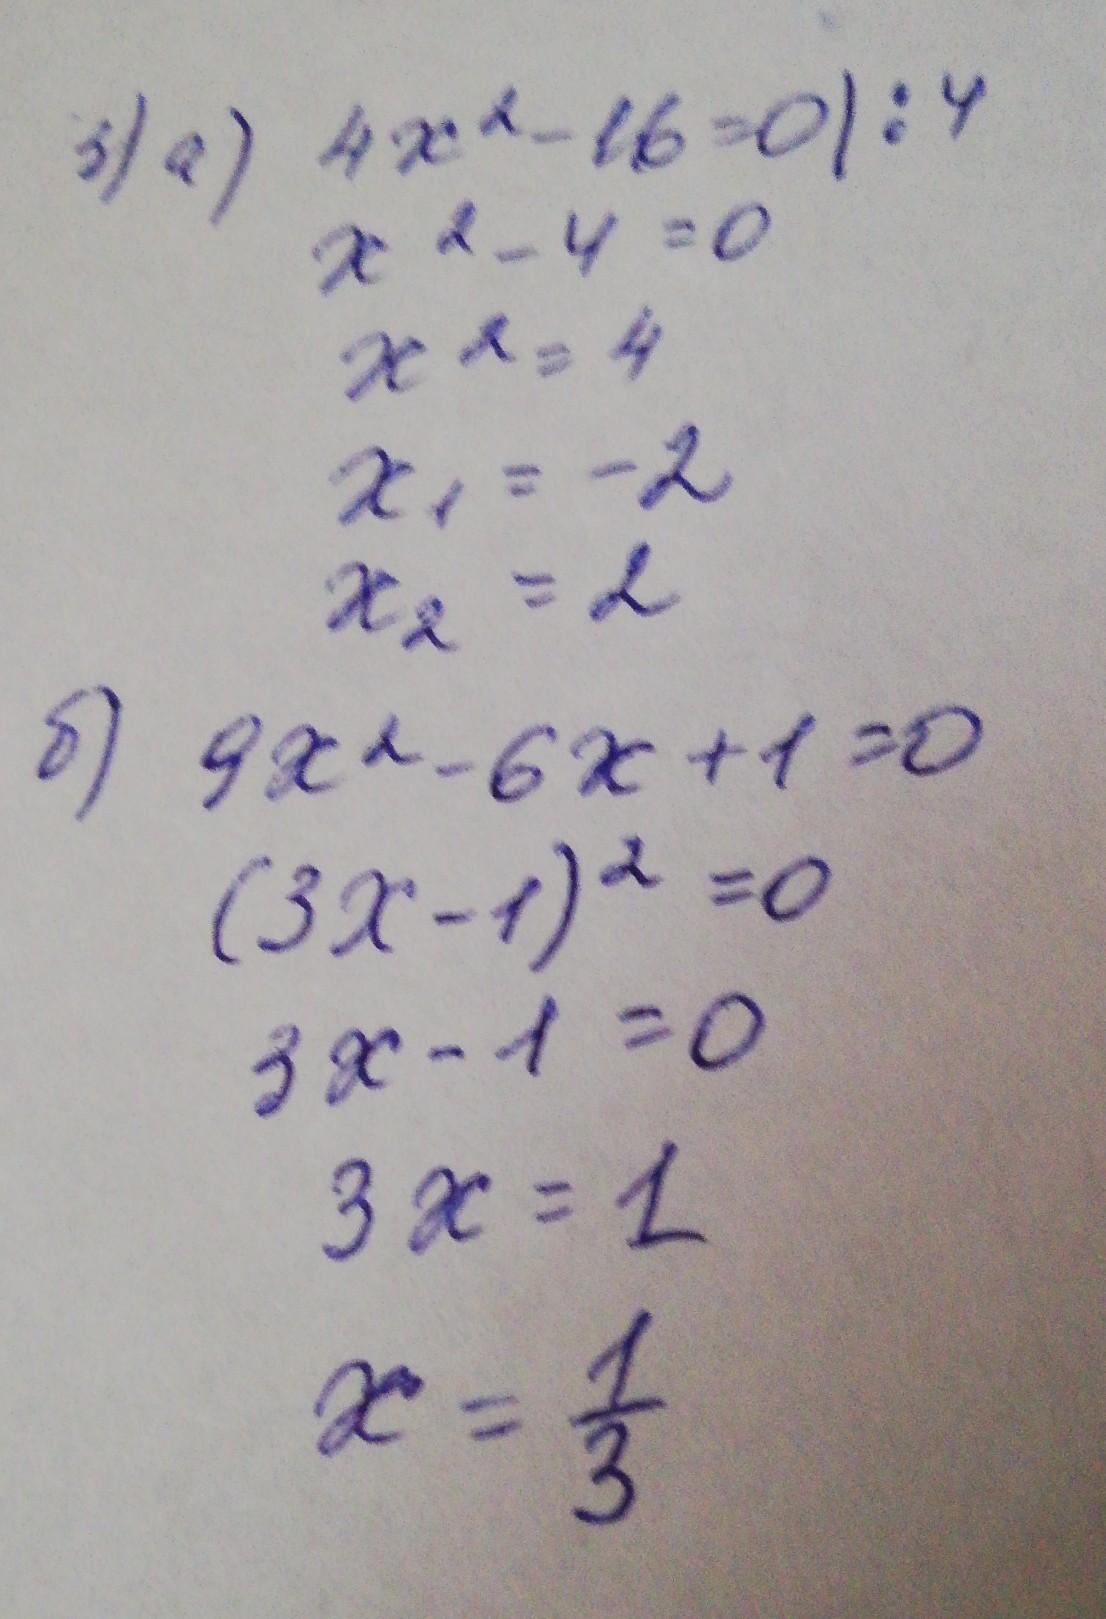 3) а) 4x² - 16 = 0 | : 4
x² - 4 = 0
x² = 4
x₁ = -2
x₂ = 2
б) 9x² - 6x + 1 = 0
(3x - 1)² = 0
3x - 1 = 0
3x = 1
x = 1/3